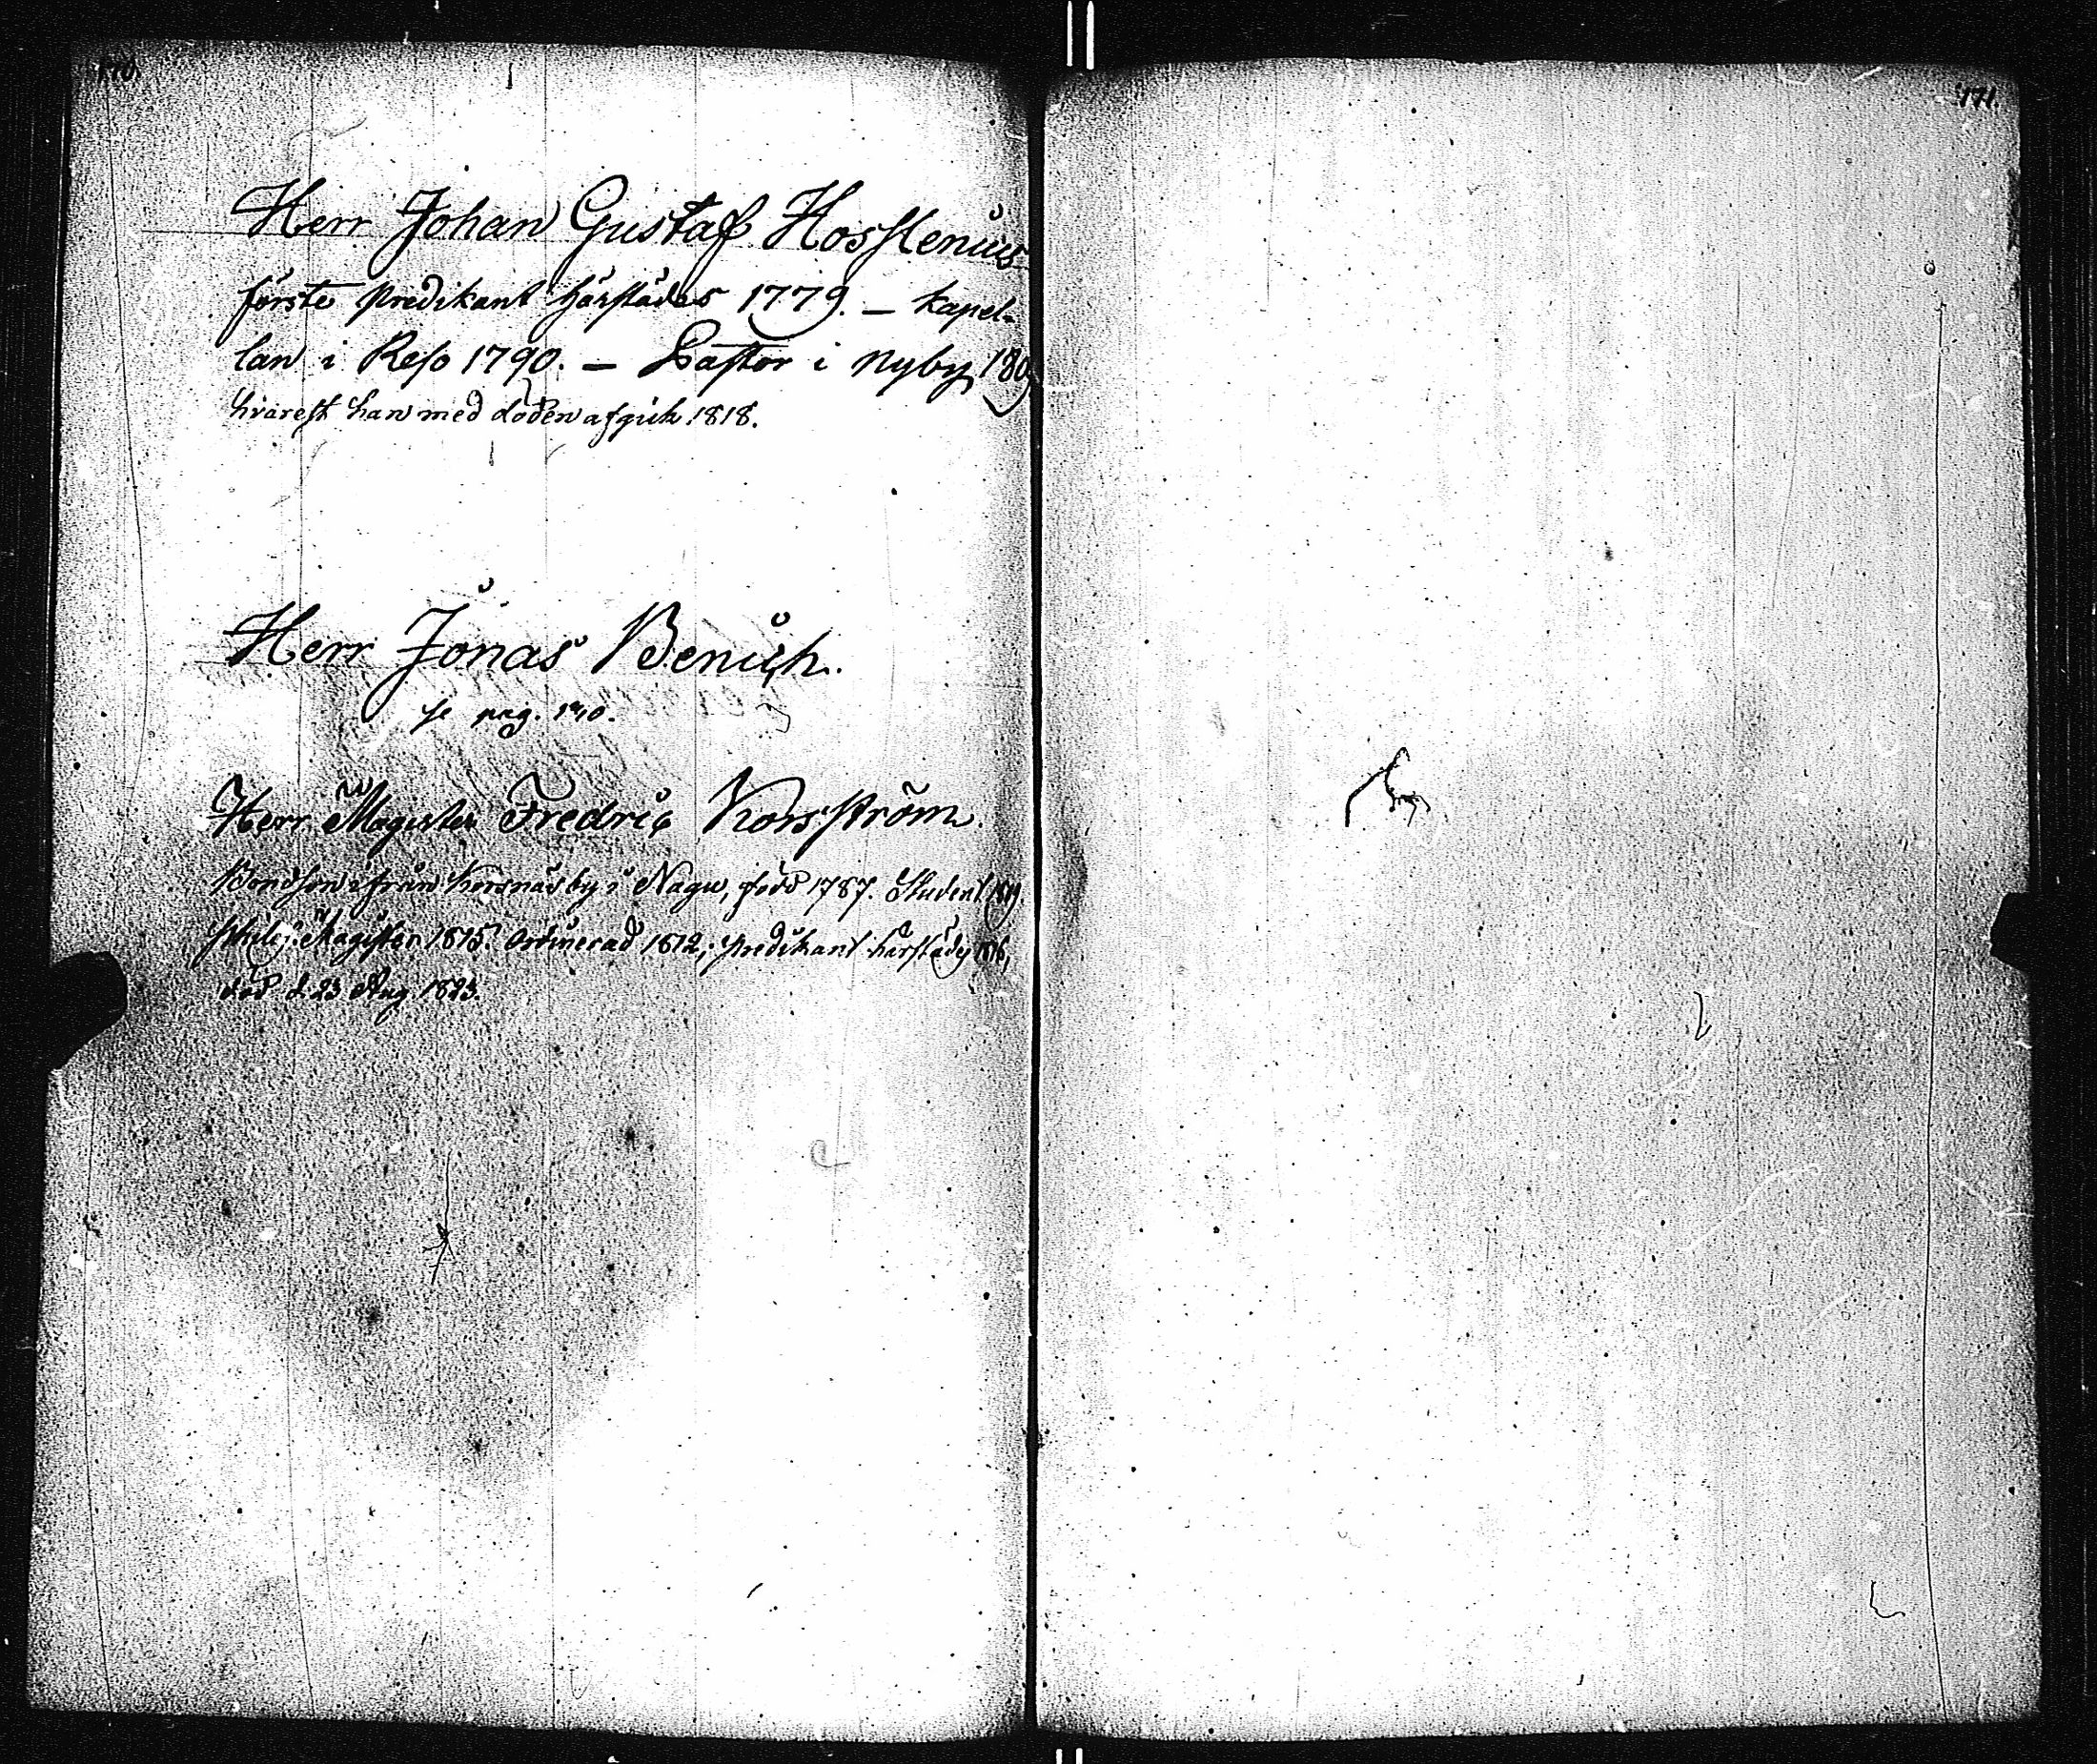 170.
Herr Johan Gustaf Hosslenius
förste Predikant härstädes 1779. — Kapel-
lan i Reso 1790. — Pastor i Nyby 1809
hvarest han med döden afgick 1818.
Herr Jonas Benich.
se pag. 140.
Herr Magister Fredric Korsström
Bondson från Korsnäs by i Nagu, född 1787. Student 1809.
Philos. Magister 1815. Ordinerad 1812, predikant härstädes 1816,
död d. 23 Aug. 1823.
171.